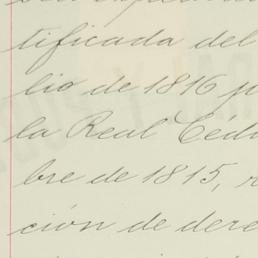 tificada del
lio de 1816 p
la Real Cédu
bre de 1815, r
ción de dere